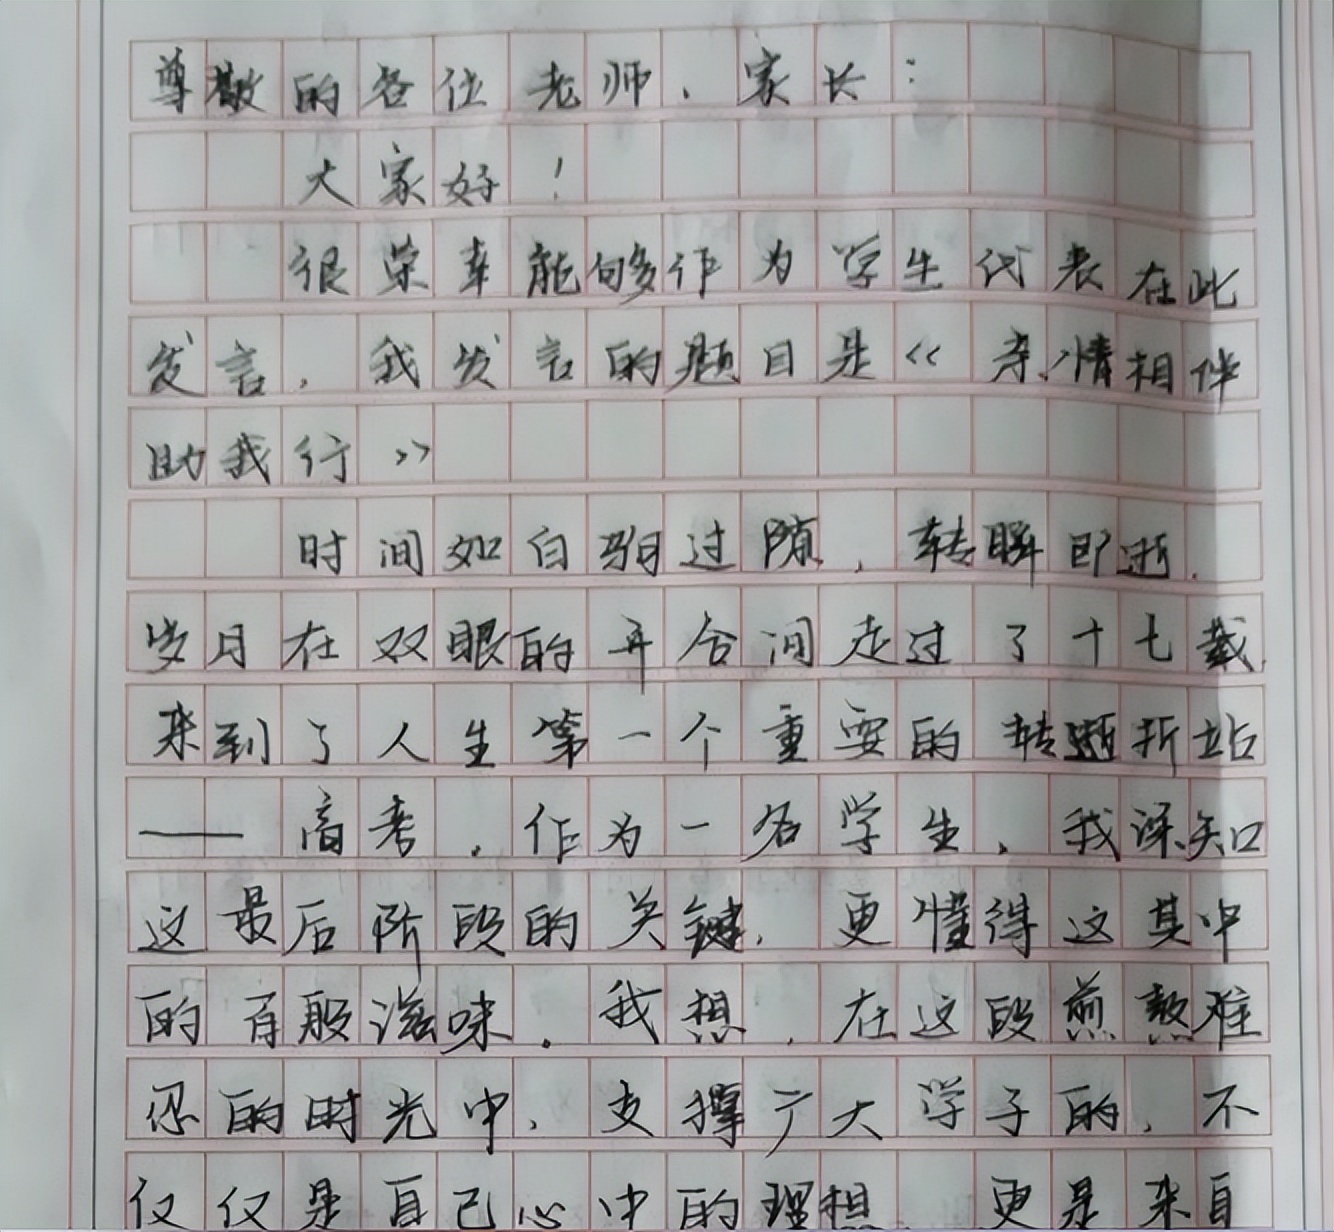 尊敬的各位老师、家长：
大家好！
很荣幸能够作为学生代表在此
发言，我发言的题目是《亲情相伴
助我行》
时间如白驹过隙，转瞬即逝，
岁月在双眼的开合间走过了十七载，
来到了人生第一个重要的转折站
——高考。作为一名学生，我深知
这最后阶段的关键，更懂得这其中
的百般滋味。我想，在这段煎熬难
忍的时光中，支撑广大学子的，不
仅仅是自己心中的理想，更是来自